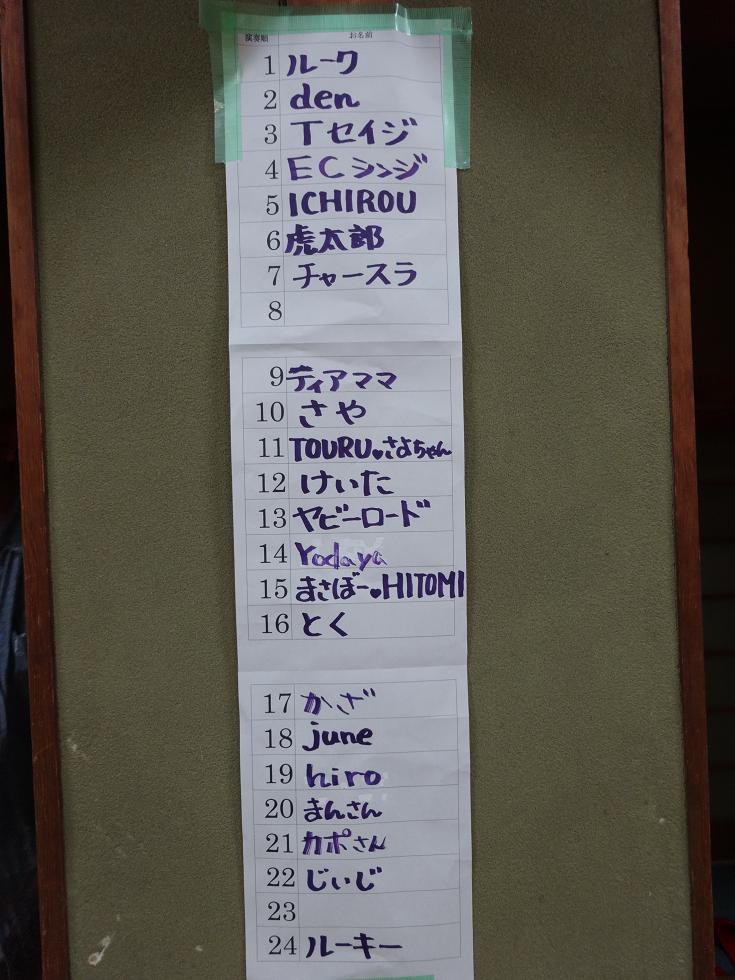 演奏順 お名前
1 ルーク
2 den
3 Tセイジ
4 ECシンジ
5 ICHIROU
6 虎太郎
7 チャースラ
8
9 ティアママ
10 さや
11 TOURU♥さよちゃん
12 けいた
13 ヤビーロード
14 Yodaya
15 まさぼー♥HITOMI
16 とく
17 かざ
18 june
19 hiro
20 まんさん
21 カポさん
22 じぃじ
23
24 ルーキー